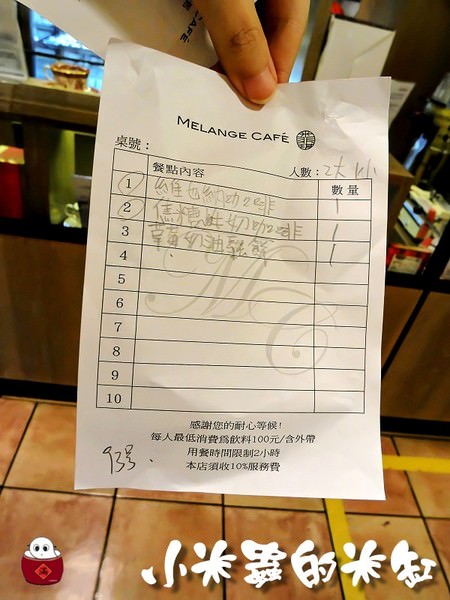 MELANGE CAFÉ
桌號：
餐點內容 人數：2大1小 數量
1 維也納咖啡 1
2 焦糖牛奶咖啡 1
3 草莓奶油鬆餅 1
4
5
6
7
8
9
10
感謝您的耐心等候！
每人最低消費為飲料100元/含外帶
用餐時間限制2小時
本店須收10%服務費
93號
小米蟲的米缸